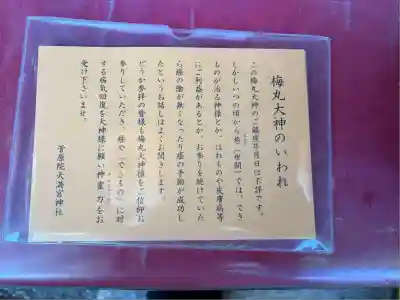 梅丸大神のいわれ
この梅丸大神のご鎮座年月日は不詳です。
しかしいつの頃から巷(世間)では、でき
ものが治る神様とか、はれものや皮膚病等
にご利益があるとか、お参りを続けていた
ら癌の陰が無くなったり癌の手術が成功し
たというお話しはよくお聞きします。
どうか参拝の皆様も梅丸大神様をご信仰お
参りしていただき、癌や「できもの」に対
する病気回復を大神様に願い神霊力をお
受け下さいませ。
菅原院天満宮神社